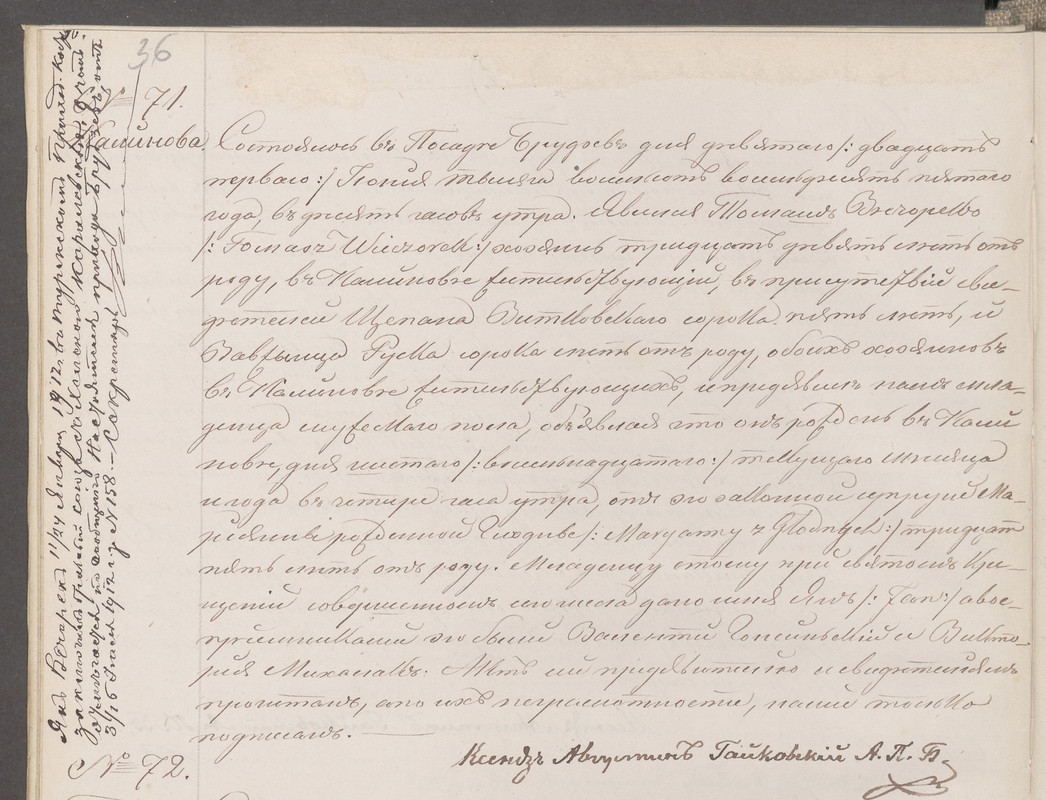 36
№ 71.
Калинова
Состоялось въ Посадѣ Брудзевѣ дня девятаго /: двадцать
перваго :/ Іюня тысяча восемсотъ восемьдесятъ пятаго
года, въ десять часовъ утра. Явился Томашъ Вечорекъ
/: Tomasz Wieczorek :/ хозяинъ тридцать девять лѣтъ отъ
роду, въ Калиновѣ жительствующій, въ присутствіи сви-
дѣтелей Щепана Витковскаго сорока пять лѣтъ, и
Вавжынца сорока лѣтъ отъ роду, обоихъ хозяиновъ
въ Калиновѣ жительствующихъ, и предъявилъ намъ мла-
денца мужескаго пола, объявляя что онъ рожденъ въ Кали
новѣ, дня шестаго /: восемнадцатаго :/ текущаго мѣсяца
и года въ четыре часа утра, отъ его законной супруги Ма-
ріянны рожденной /: Maryanny z Głodnych :/ тридцать
пять лѣтъ отъ роду. Младенцу этому при святомъ Кре-
щеніи совершенномъ сего числа дано имя Янъ /: Jan :/ а вос-
пріемниками его были Валенты и Викто-
рія Михалакъ. Актъ сей предъявителю и свидѣтелямъ
прочитанъ, а по ихъ неграмотности, нами только
подписанъ.
Ксендзъ Августинъ Гайковскій А. П. Б.
Янъ Вечорекъ 11/24 Января 1912 въ Турекскомъ приход. кост.
заключилъ брачный союзъ съ
согласно сообщенія Настоятеля прихода Брудзевъ отъ
3/16 1912 г. за № 158
№ 72.